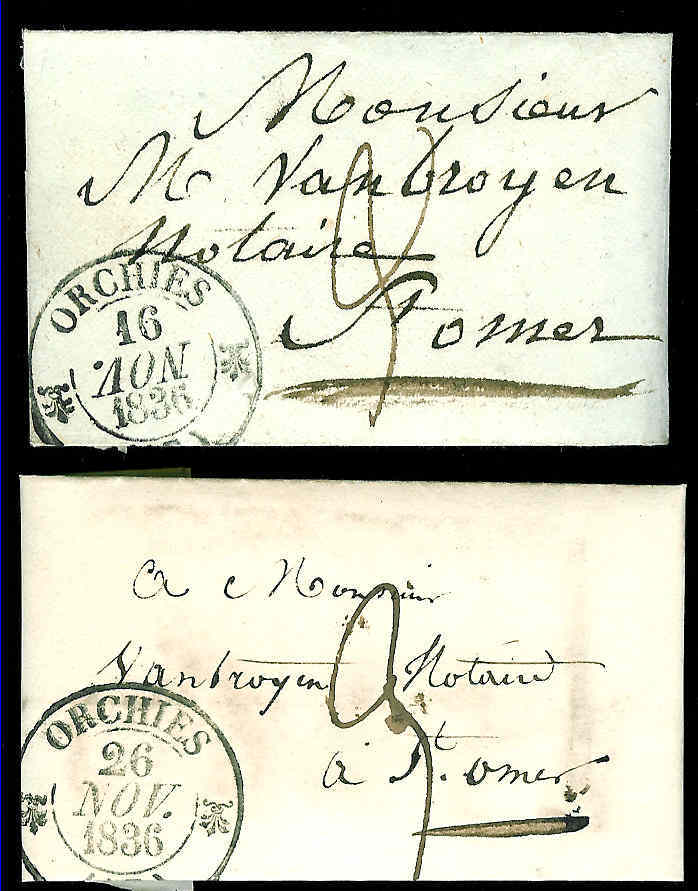 Monsieur
M. Vanbroyen
Notaire
St omer
ORCHIES
16
NOV.
1836
a Monsieur
Vanbroyen Notaire
a St. omer
ORCHIES
26
NOV.
1836